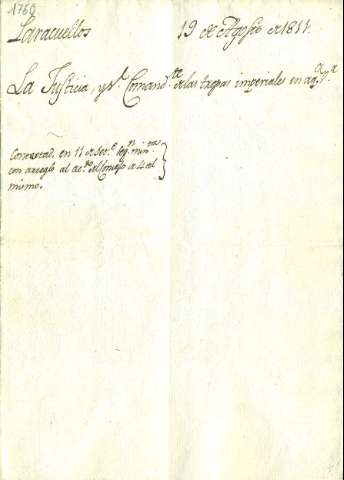 1760
Caracuellos 19 de Agosto de 1811.
La Justicia, y Sr. Comand.te de las tropas imperiales en aq.a V.a
Contextad. en 11 de Sep.e seg.n min.tas
con arreglo al ac.do del Consejo de 4 del
mismo.